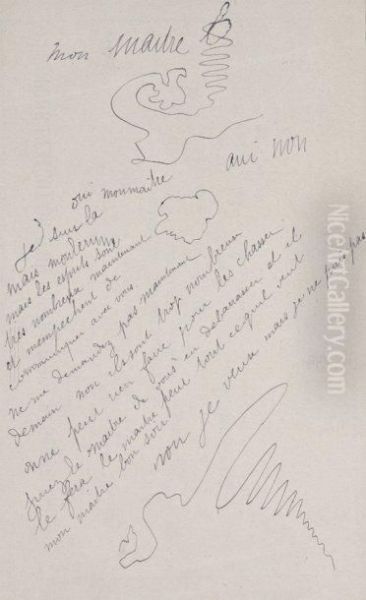 mon maitre
oui non
oui mon maitre
je suis la
mais mon
mais les esprits sont
tres nombreux maintenant
et m'empechent de
communiquer avec vous
ne me demandez pas maintenant
demain non ils sont trop nombreux
on ne peut rien faire pour les chasser
priez le maitre de vous en debarasser et il
le fera le maitre peut tout ce qu'il veut
mon maitre bon soir
non je veux mais je ne puis pas
NiceArtGallery.com